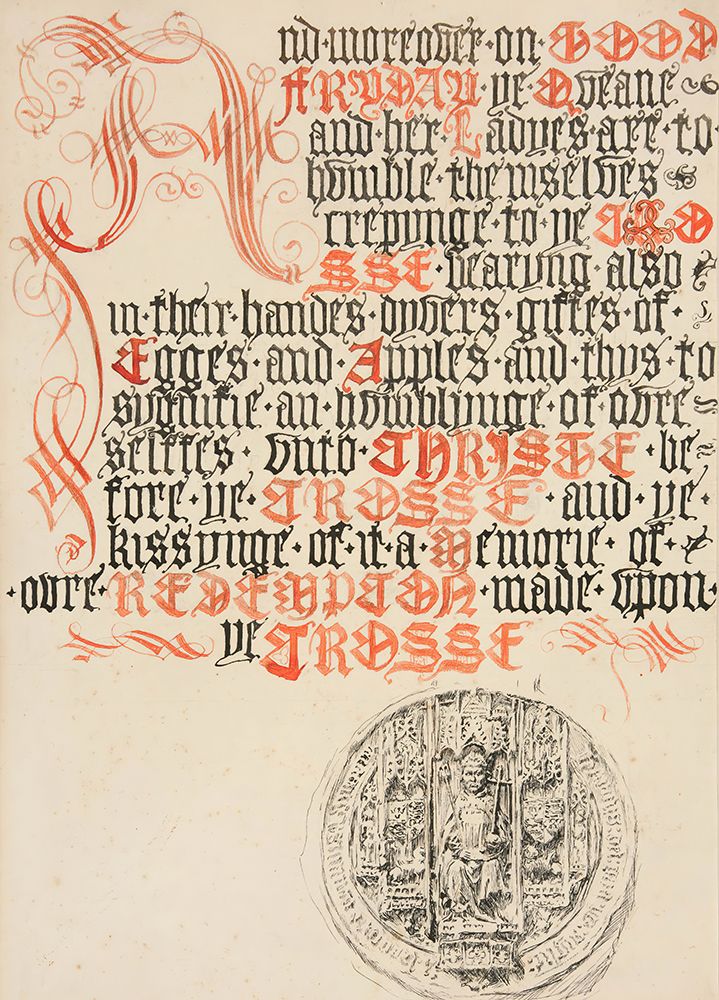 And·moreover·on·GOOD
FRYDAY·ye·Qveane
and·her·Ladyes·are·to
hvmble·themselves
crepynge·to·ye CRO
SSE·bearyng·also
in·their·handes·dyvers·giftes·of·
Egges·and·Apples·and·thys·to
sygnifie·an·hvmblynge·of·ovre
selffes·vnto·CHRISTE·be
fore·ye·CROSSE·and·ye·
kissynge·of·it·a·Memorie·of·
·ovre·REDEMPTON·made·vpon·
ye CROSSE